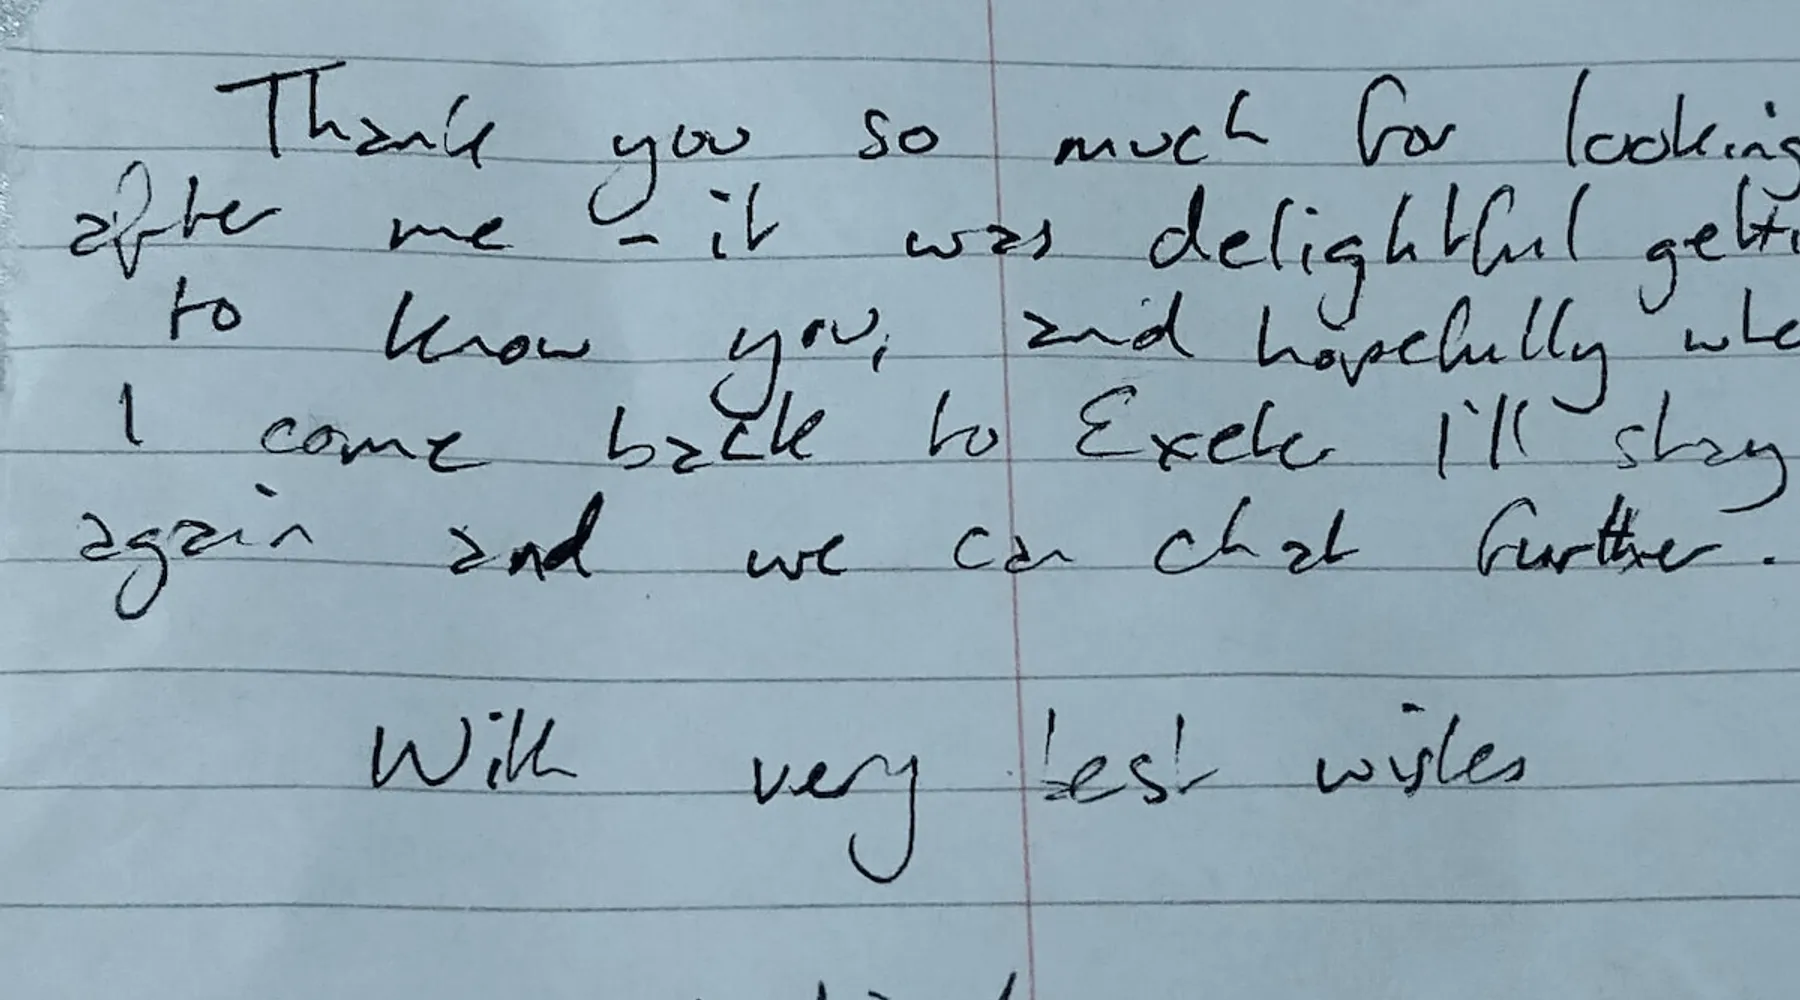 Thank you so much for looking
after me - it was delightful getti
to know you, and hopefully whe
I come back to Exeter I'll stay
again and we can chat further.
With very best wishes